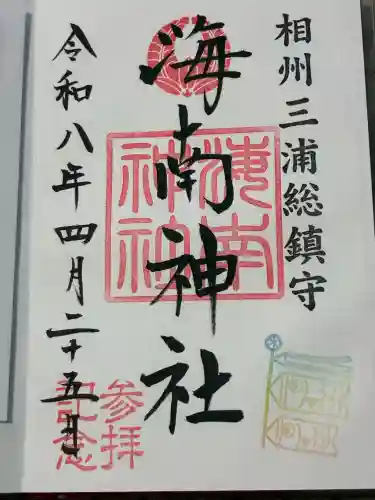 相州三浦総鎮守
海南神社
海南神社
令和八年四月二十五日
参拝記念